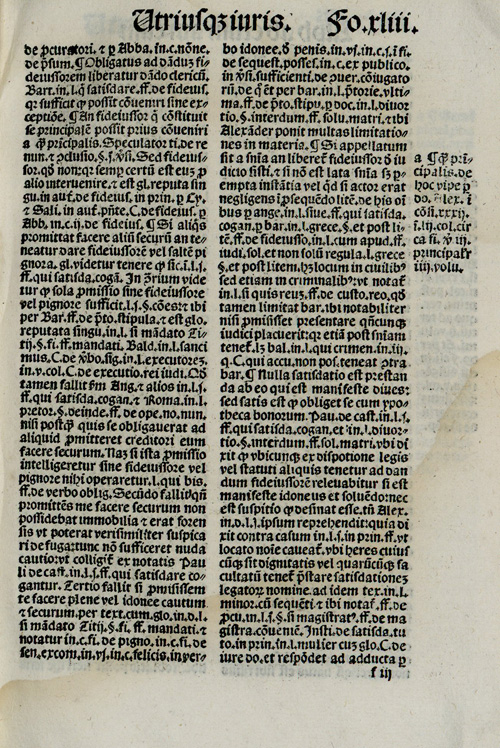 Utriusqʒ iuris. Fo.xliii.
de ꝓcuratori. ⁊ ꝑ Abba. in.c. nōne.
de p̄sum. ¶ Obligatus ad dādū fi-
deiussorem liberatur dādo clericū.
Bart. in.l. satisdare. ff. de fideius.
qr sufficit ꝙ possit cōueniri sine ex-
ceptiōe. ¶ An fideiussor ꝙ cōstituit
se principalē possit prius cōueniri
a ꝙ p̄ncipalis. Speculator ti. de re
nun. ⁊ ꝓclusio. §.j. v̄si. Sed fideius-
sor. qd nō: qr semꝑ certū est euʒ ꝓ
alio interuenire. ⁊ est gl. reputa sin
gu. in aut̄. de fideius. in prin. ꝑ Cy.
⁊ Sali. in aut̄. p̄nte. C. de fideius. ꝑ
Abb. in.c.ij. de fideius. ¶ Si aliqs
promittat facere aliū securū an te-
neatur dare fideiussorē vel saltē pi
gnora. gl. videtur tenere ꝙ sic. i.l.s.
ff. qui satisda. cogā. In ꝯrium vide
tur ꝙ sola ꝓmissio sine fideiussore
vel pignore sufficit. l.s. §. cōes: ⁊ ibi
per Bar. ff. de p̄to. stipula. ⁊ est glo.
reputata singu. in.l. si mādato Ti-
tij. §. fi. ff. mandati. Bald. in.l. sanci
mus. C. de v̄bo. sig. in.l. executorez.
in.v. col. C. de executio. rei iudi. Qd
tamen fallit ꝑm Ang. ⁊ alios in.l.s.
ff. qui satisda. cogan. ⁊ Roma. in.l.
pretor. §. deinde. ff. de ope. no. nun.
nisi postꝙ quis se obligauerat ad
aliquid ꝓmitteret creditori eum
facere securum. Naʒ si ista ꝓmissio
intelligeretur sine fideiussore vel
pignore nihi operaretur. l. qui bis.
ff. de verbo. oblig. Secūdo fallit: qn̄
promittēs me facere securum non
possidebat immobilia ⁊ erat foren
sis vt poterat verisimiliter suspica
ri de fuga: tunc nō sufficeret nuda
cautio: vt colligit̄ ex notatis Pau
li de cast. in.l.s. ff. qui satisdare co-
gantur. Tertio fallit si ꝓmisissem
te facere plene vel idonee cautum
⁊ securum. per text. cum. glo. in.d.l.
si mādato Titij. §. fi. ff. mandati. ⁊
notatur in.c. fi. de pigno. in.c. fi. de
sen. excom. in.vj. in.c. felicis. in ver-
bo idonee. d̄ penis. in.vj. in.c.j. ī fi.
de sequest. posses. in.c. ex publico.
in v̄si. sufficienti. de ꝯuer. cōiugato
rū. de q̄ ēt per bar. in.l. p̄torie. vlti-
ma. ff. de p̄to. stipu. ꝑ doc. in.l. diuor
tio. §. interdum. ff. solu. matri. ⁊ ibi
Alexāder ponit multas limitatio-
nes in materia. ¶ Si appellatum
sit a snīa an liberet̄ fideiussor d̄ iu
dicio sisti. ⁊ si nō est lata snīa sʒ p-
empta instātia vel qd si actor erat
negligens ī ꝓsequēdo litē. de his oī
bus ꝑ ange. in.l. siue. ff. qui satisda.
cogan. ꝑ bar. in.l. grece. §. et post li-
tē. ff. de fideiusso. in.l. cum apud. ff.
iudi. sol. et non solū regula. l. grece
§. et post litem. hʒ locum in ciuilibꝰ
sed etiam in criminalibꝰ: vt notat̄
in.l. si quis reuʒ. ff. de custo. reo. qd
tamen limitat bar. ibi notabiliter
nisi ꝓmisisset presentare qn̄cunqʒ
iudici placuerit: qr etiā post snīam
tenet̄. lʒ bal. in.l. qui crimen. in.iij.
q. C. qui accu. non pos. teneat ꝯtra
bar. ¶ Nulla satisdatio est prestan
da ab eo qui est manifeste diues:
sed satis est ꝙ obliget se cum ypo-
theca bonorum. Pau. de cast. in.l.s.
ff. qui satisda. cogan. et in.l. diuor-
tio. §. interdum. ff. sol. matri. vbi di
xit ꝙ vbicunqʒ ex dispotione legis
vel statuti aliquis tenetur ad dan
dum fideiussorē releuabitur si est
manifeste idoneus et soluēdo: nec
est suspitio ꝙ desinat esse. tn̄ Alex.
in.d.l.s. ipsum reprehendit: quia di
xit contra casum in.l.s. in prin. ff. vt
locato noīe caueat̄. vbi heres cuius
cūqʒ sit dignitatis vel quarūcūqʒ fa
cultatū tenet̄ p̄stare satisdationez
legatoꝝ nomine. ad idem tex. in.l.
minor. cū sequēti ⁊ ibi notat̄. ff. de
ꝓcu. in.l.s. §. si magistratꝰ. ff. de ma
gistra. cōueniē. Insti. de satisda. tu
to. in prin. in.l. mulier cuʒ glo. C. de
iure do. et respōdet ad adducta ꝑ
f iij
a ¶ Qʒ p̄rī-
cipalis. de
hoc vide ꝑ
do. Alex. i
cōsi. xxxij.
i. iij. col. cir
ca fi. v̄. ij.
principalꝰ
iiij. volu.